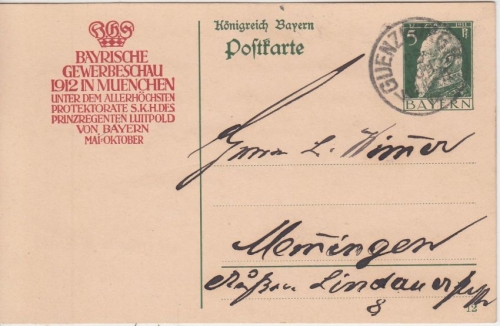 BAYRISCHE
GEWERBESCHAU
1912 IN MUENCHEN
UNTER DEM ALLERHÖCHSTEN
PROTEKTORATE S.K.H.DES
PRINZREGENTEN LUITPOLD
VON BAYERN
MAI-OKTOBER
Königreich Bayern
Postkarte
5
BAYERN
GUENZ
Herrn L.
Memmingen
Lindauer
8
12